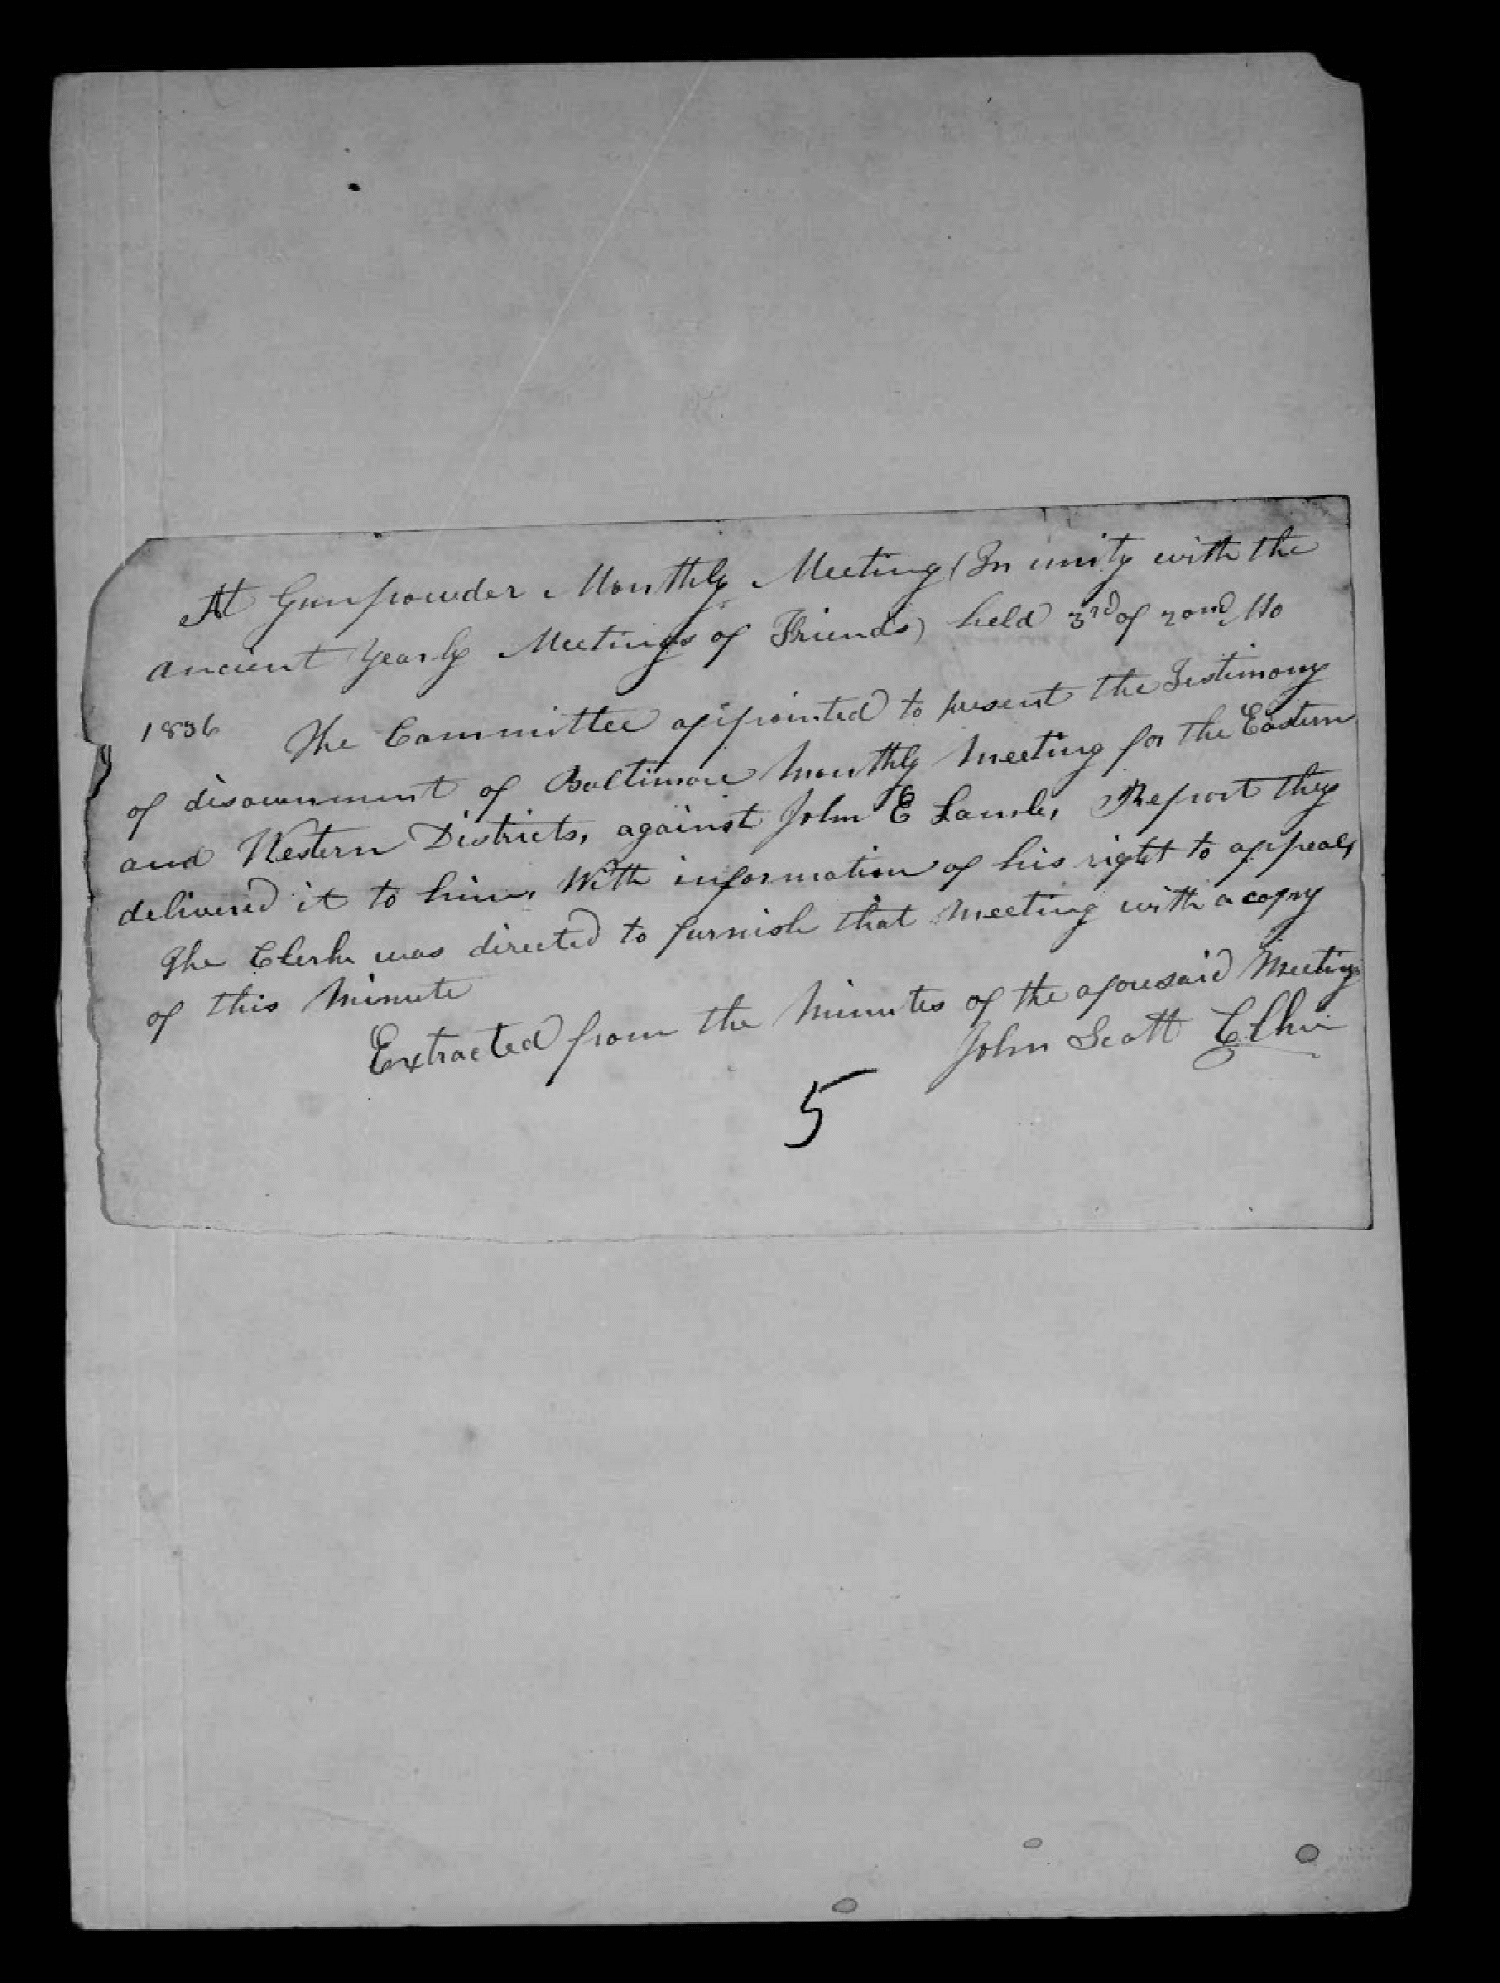 At Gunpowder Monthly Meeting (In unity with the
ancient Yearly Meetings of Friends) held 3rd of 2ond Mo
1836 The Committee appointed to present the Testimony
of disownment of Baltimore Monthly Meeting for the Eastern
and Western Districts, against John E Lamb, Report they
delivered it to him, With information of his right to appeal,
The Clerk was directed to furnish that Meeting with a copy
of this Minute
Extracted from the Minutes of the aforesaid Meeting
John Scott Clk
5